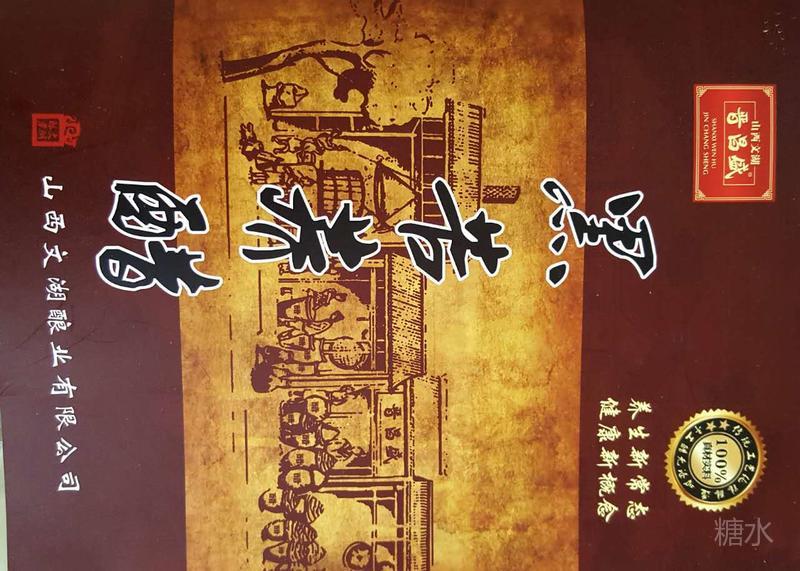 山西文湖
晋昌盛®
SHANXI WEN HU
JIN CHANG SHENG
养生新常态
健康新概念
100%
真材实料
黑苦荞醋
晋昌盛
山西文湖酿业有限公司
糖水